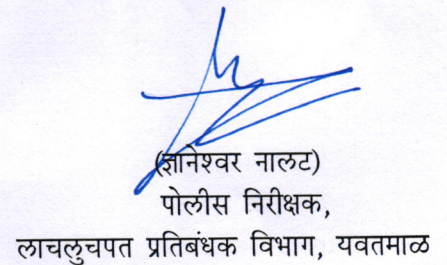 (ज्ञानेश्वर नालट)
पोलीस निरीक्षक,
लाचलुचपत प्रतिबंधक विभाग, यवतमाळ